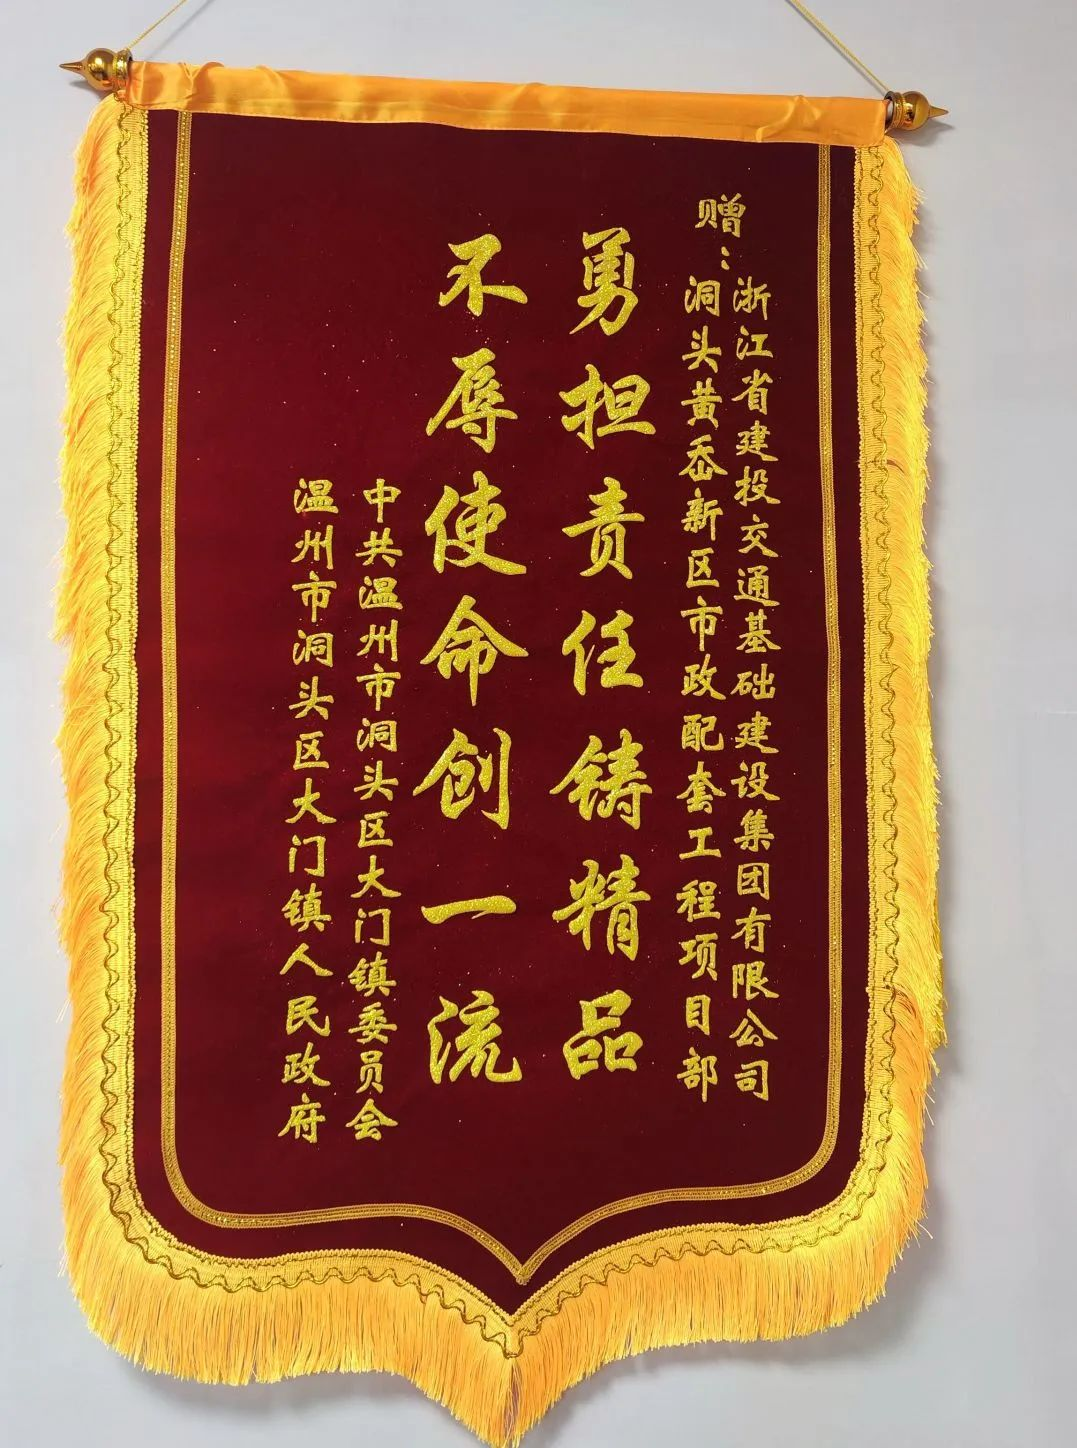 赠：
浙江省建投交通基础建设集团有限公司
洞头黄岙新区市政配套工程项目部
勇担责任铸精品
不辱使命创一流
中共温州市洞头区大门镇委员会
温州市洞头区大门镇人民政府